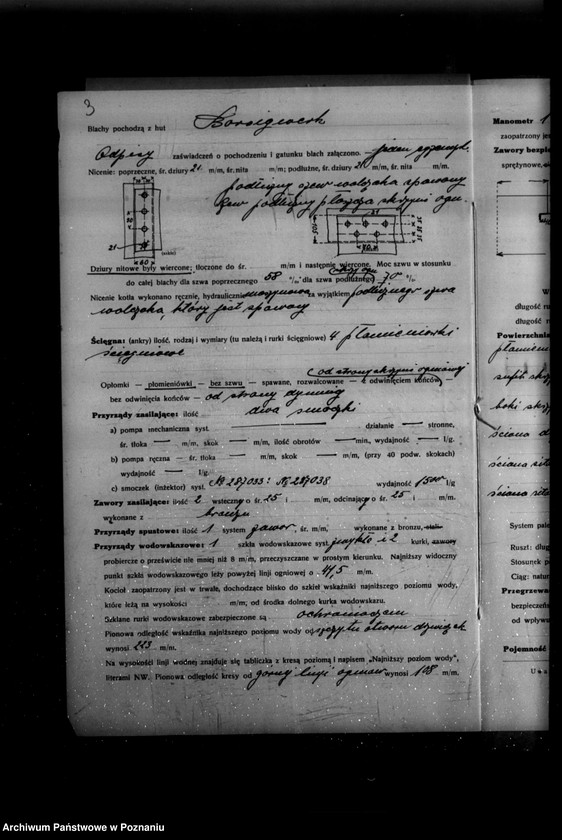 3
Blachy pochodzą z hut Borsigwerk
Odpisy zaświadczeń o pochodzeniu i gatunku blach załączono. — jeden
Nicenie: poprzeczne, śr. dziury 21 m/m, śr. nita m/m; podłużne, śr. dziury 21 m/m, śr. nita m/m.
podłużny szew walczaka spawany
Szew podłużny płaszcza skrzyni ogn.
21
60
Dziury nitowe były wiercone; tłoczone do śr. m/m i następnie wiercone. Moc szwu w stosunku
do całej blachy dla szwa poprzecznego 58 %, dla szwa podłużnego 70 %.
Nicenie kotła wykonano ręcznie, hydraulicznie maszynowo za wyjątkiem podłużnego szwa
walczaka, który jest spawany
Ścięgna: (ankry) ilość, rodzaj i wymiary (tu należą i rurki ścięgniowe) 4 płomieniówki
ścięgniowe
(od strony skrzyni ogniowej
Opłomki — płomieniówki — bez szwu — spawane, rozwalcowane — z odwinięciem końców —
bez odwinięcia końców — od strony dymnicy
Przyrządy zasilające: ilość dwa smoczki
a) pompa mechaniczna syst. działanie — stronne,
śr. tłoka — m/m, skok — m/m, ilość obrotów — min., wydajność — l/g.
b) pompa ręczna — śr. tłoka — m/m, skok — m/m, (przy 40 podw. skokach)
wydajność — l/g.
c) smoczek (inżektor) syst. № 287033: № 287038 wydajność 1500 l/g
Zawory zasilające: ilość 2 wsteczny o śr. 25 i m/m, odcinający o śr. 25 i m/m.
wykonane z brązu
Przyrządy spustowe: ilość 1 system zawor, śr. m/m, wykonane z bronzu, stali
Przyrządy wodowskazowe: 1 szkła wodowskazowe syst. zwykłe i 2 kurki, zawory
probiercze o prześwicie nie mniej niż 8 m/m, przeczyszczane w prostym kierunku. Najniższy widoczny
punkt szkła wodowskazowego leży powyżej linji ogniowej o 41,5 m/m.
Kocioł zaopatrzony jest w trwałe, dochodzące blisko do szkieł wskaźniki najniższego poziomu wody,
które leżą na wysokości m/m, od środka dolnego kurka wodowskazu.
Szklane rurki wodowskazowe zabezpieczone są ochraniaczem
Pionowa odległość wskaźnika najniższego poziomu wody od szczytu otworu drzwiczek
wynosi 223 m/m.
Na wysokości linji wodnej znajduje się tabliczka z kresą poziomą i napisem „Najniższy poziom wody”,
literami NW. Pionowa odległość kresy od górnej linji ogniowej wynosi 108 m/m.
Manometr 1
zaopatrzony je
Zawory bezpie
sprężynowe,
W
długość ru
długość ru
Powierzchnia
płomieni
sufit skrz
boki skrz
ściana d
ściana sita
ściana sita
System pale
Ruszt: dług
Stosunek p
Ciąg: natur
Przegrzewa
bezpieczeń
od wpływu
Pojemność
Archiwum Państwowe w Poznaniu